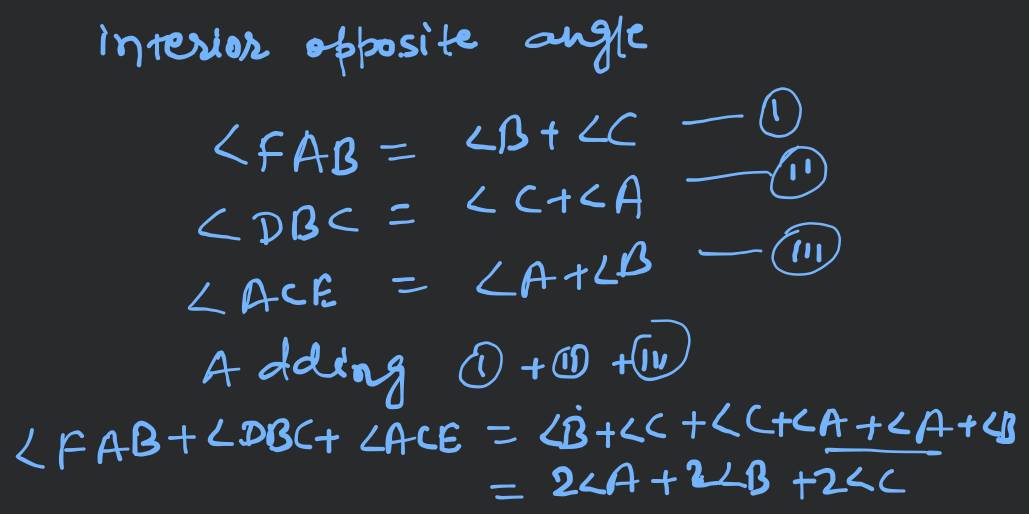 interior opposite angle
∠FAB = ∠B + ∠C — (I)
∠DBC = ∠C + ∠A — (II)
∠ACE = ∠A + ∠B — (III)
Adding (I) + (III) + (IV)
∠FAB + ∠DBC + ∠ACE = ∠B + ∠C + ∠C + ∠A + ∠A + ∠B
= 2∠A + 2∠B + 2∠C